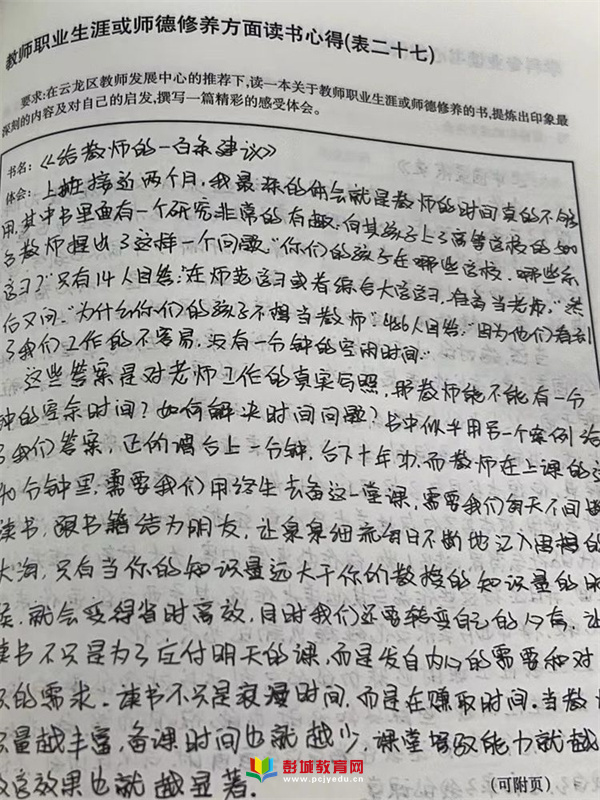 教师职业生涯或师德修养方面读书心得(表二十七)
要求:在云龙区教师发展中心的推荐下,读一本关于教师职业生涯或师德修养的书,提炼出印象最
深刻的内容及对自己的启发,撰写一篇精彩的感受体会。
书名:《给教师的一百条建议》
体会:上班接近两个月,我最深的体会就是教师的时间真的不够
用,其中书里面有一个研究非常的有趣,向其孩子上了高等学校的500
名教师提出了这样一个问题"你们的孩子在哪些学校,哪些系
学习?"只有14人回答:在师范学习或者综合大学学习,准备当老师,"然
后又问,"为什么你们的孩子不想当教师"486人回答,"因为他们看到
了我们工作的不容易,没有一分钟的空闲时间。"
这些答案是对老师工作的真实写照,那教师能不能有一分
钟的空余时间?如何解决时间问题?书中似乎用另一个案例给
了我们答案,正所谓台上一分钟,台下十年功,而教师在上课的这
40分钟里,需要我们用终生去备这一堂课,需要我们每天不间断
读书,跟书籍结为朋友,让泉泉细流每日不断地注入思想的
大海,只有当你的知识量远大于你的教授的知识量的时
候,就会变得省时高效,同时我们还要转变自己的心态,让
读书不只是为了应付明天的课,而是发自内心的需要和对
识的需求。读书不只是浪漫时间,而是在赚取时间。当教
识量越丰富,备课时间也就越少,课堂驾驭能力就越
教育效果也就越显著。
(可附页)
彭城教育网
www.pcjyedu.cn